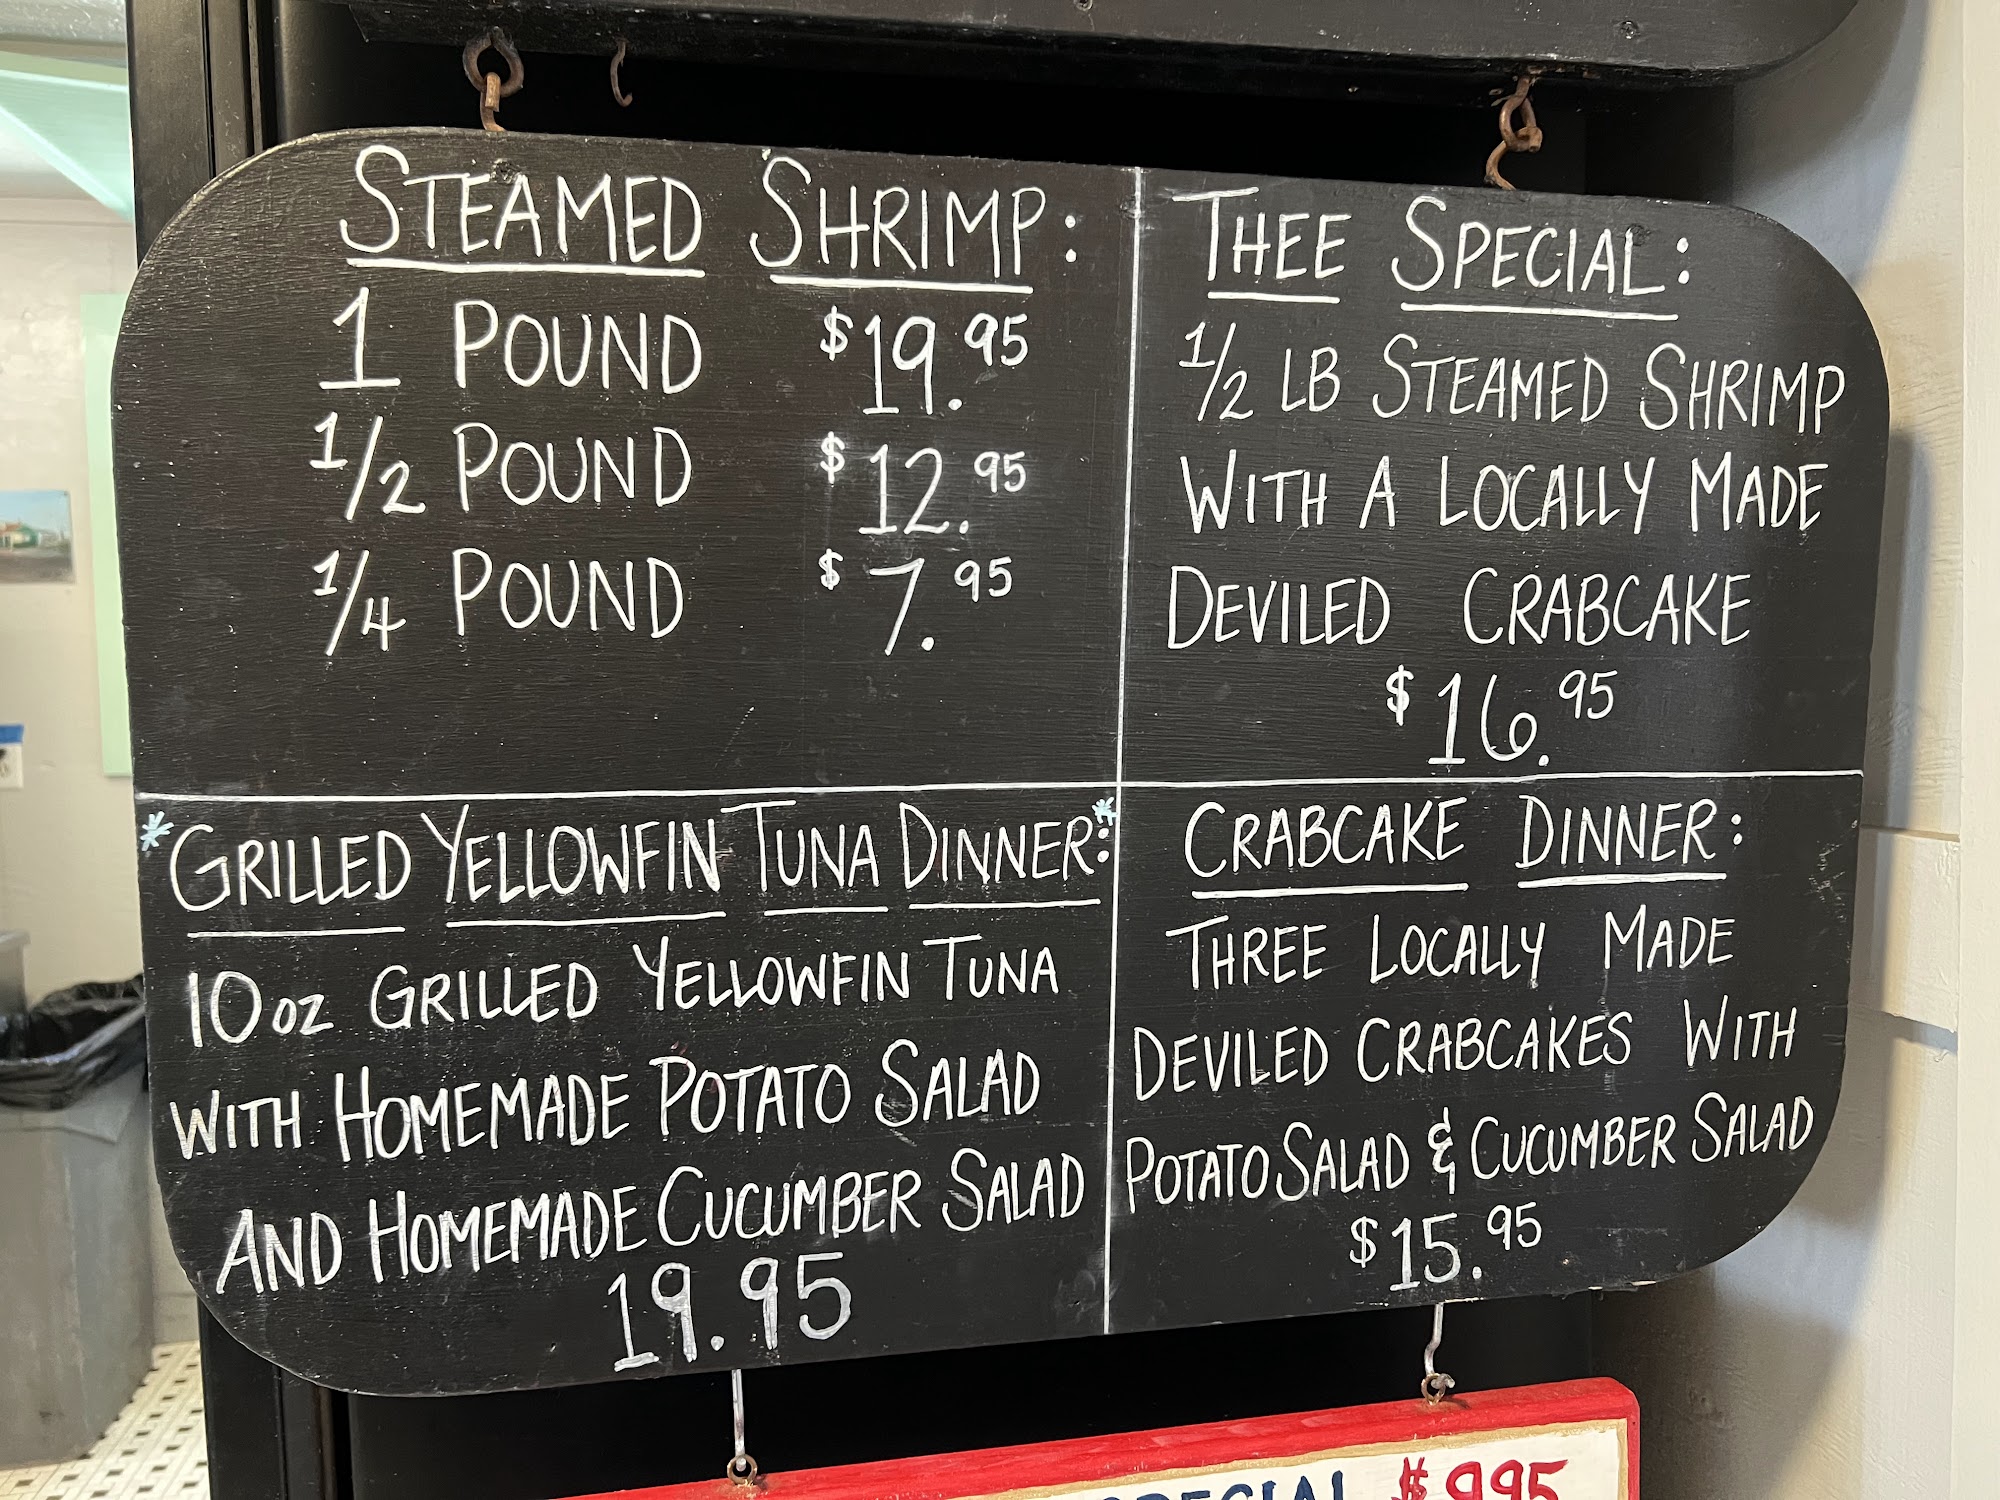 STEAMED SHRIMP:
1 POUND $19.95
1/2 POUND $12.95
1/4 POUND $7.95
THEE SPECIAL:
1/2 LB STEAMED SHRIMP
WITH A LOCALLY MADE
DEVILED CRABCAKE
$16.95
*GRILLED YELLOWFIN TUNA DINNER:*
10 OZ GRILLED YELLOWFIN TUNA
WITH HOMEMADE POTATO SALAD
AND HOMEMADE CUCUMBER SALAD
19.95
CRABCAKE DINNER:
THREE LOCALLY MADE
DEVILED CRABCAKES WITH
POTATO SALAD & CUCUMBER SALAD
$15.95
SPECIAL $995